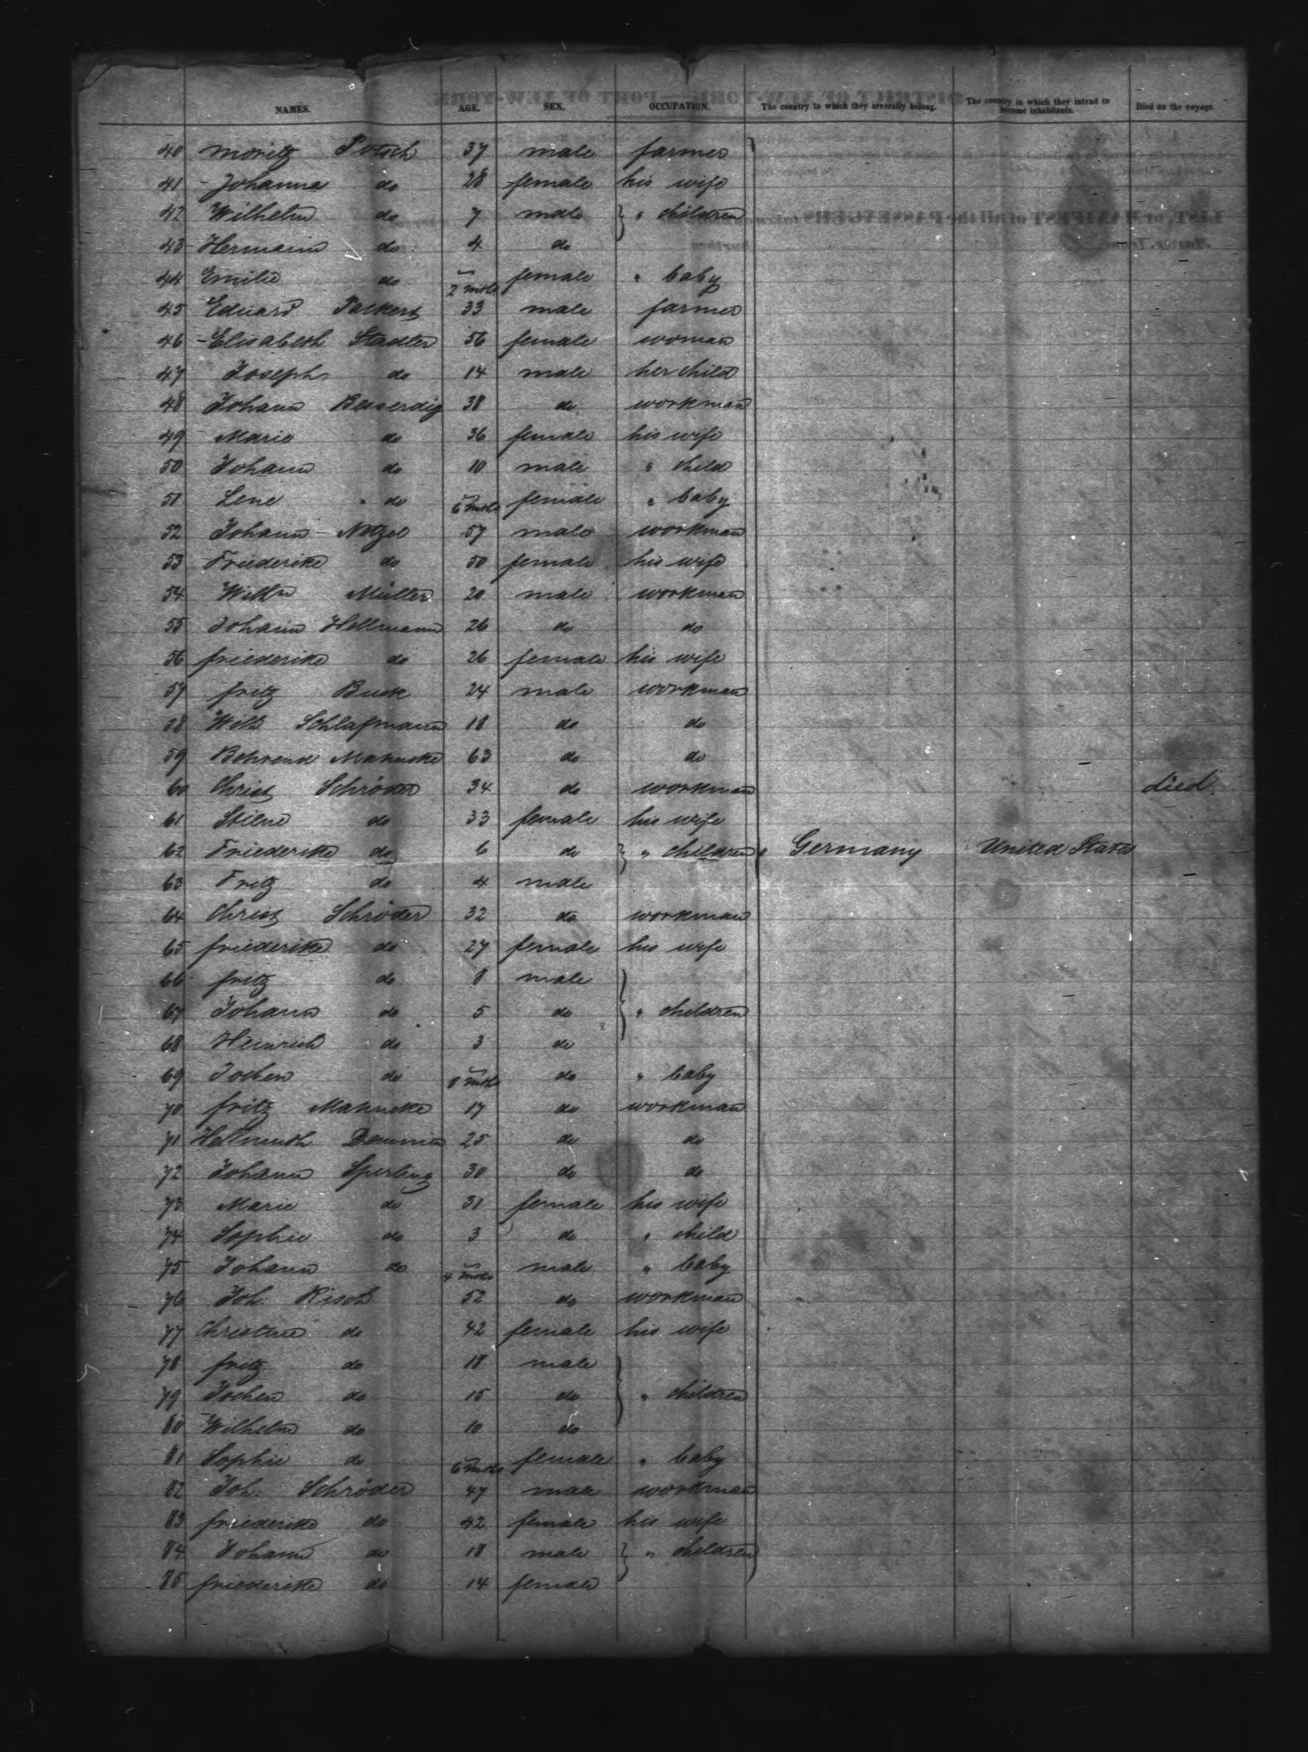 NAMES. AGE. SEX. OCCUPATION. The country to which they severally belong. The country in which they intend to become inhabitants. Died on the voyage.
40 Moritz 37 male farmer
41 Johanna do 28 female his wife
42 Wilhelm do 7 male } " children
43 Hermann do 4 do
44 Emilie do 2 mths female " baby
45 Eduard 33 male farmer
46 Elisabeth Stadler 56 female woman
47 Joseph do 14 male her child
48 Johann 38 do workman
49 Marie do 36 female his wife
50 Johann do 10 male " child
51 Lene do 6 mths female " baby
52 Johann 57 male workman
53 Friederike do 50 female his wife
54 Wilh Müller 20 male workman
55 Johann Hellmann 26 do do
56 friederike do 26 female his wife
57 fritz 24 male workman
58 Wilh Schlafmann 18 do do
59 Behrend Mahncke 63 do do
60 Christ Schröder 34 do workman died.
61 do 33 female his wife
62 Friederike do 6 do } " children Germany United States
63 Fritz do 4 male
64 Christ Schröder 32 do workman
65 friederike do 27 female his wife
66 fritz do 8 male
67 Johann do 5 do } " children
68 Heinrich do 3 do
69 Jochen do 8 mths do " baby
70 fritz Mahncke 17 do workman
71 Hellmuth 25 do do
72 Johann Sperling 30 do do
73 Marie do 31 female his wife
74 Sophie do 3 do " child
75 Johann do 4 mths male " baby
76 Joh. Risch 52 do workman
77 Christine do 42 female his wife
78 fritz do 18 male
79 Jochen do 15 do } " children
80 Wilhelm do 10 do
81 Sophie do 6 mths female " baby
82 Joh. Schröder 47 male workman
83 friederike do 42 female his wife
84 Johann do 18 male } " children
85 friederike do 14 female